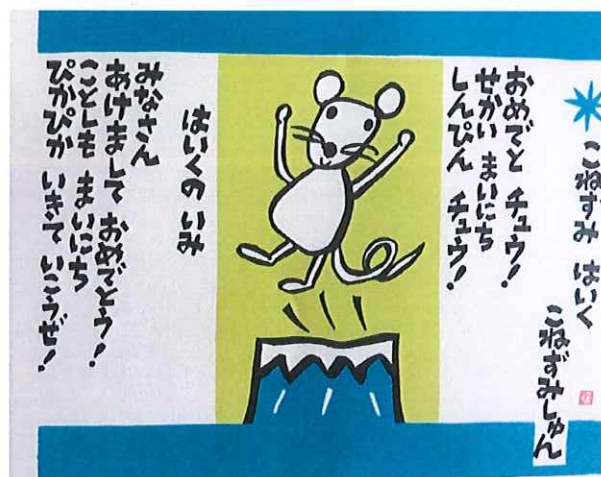 こねずみ はいく
こねずみしゅん
おめでと チュウ!
せかい まいにち
しんぴん チュウ!
はいくの いみ
みなさん
あけまして おめでとう!
ことしも まいにち
ぴかぴか いきて いこうぜ!